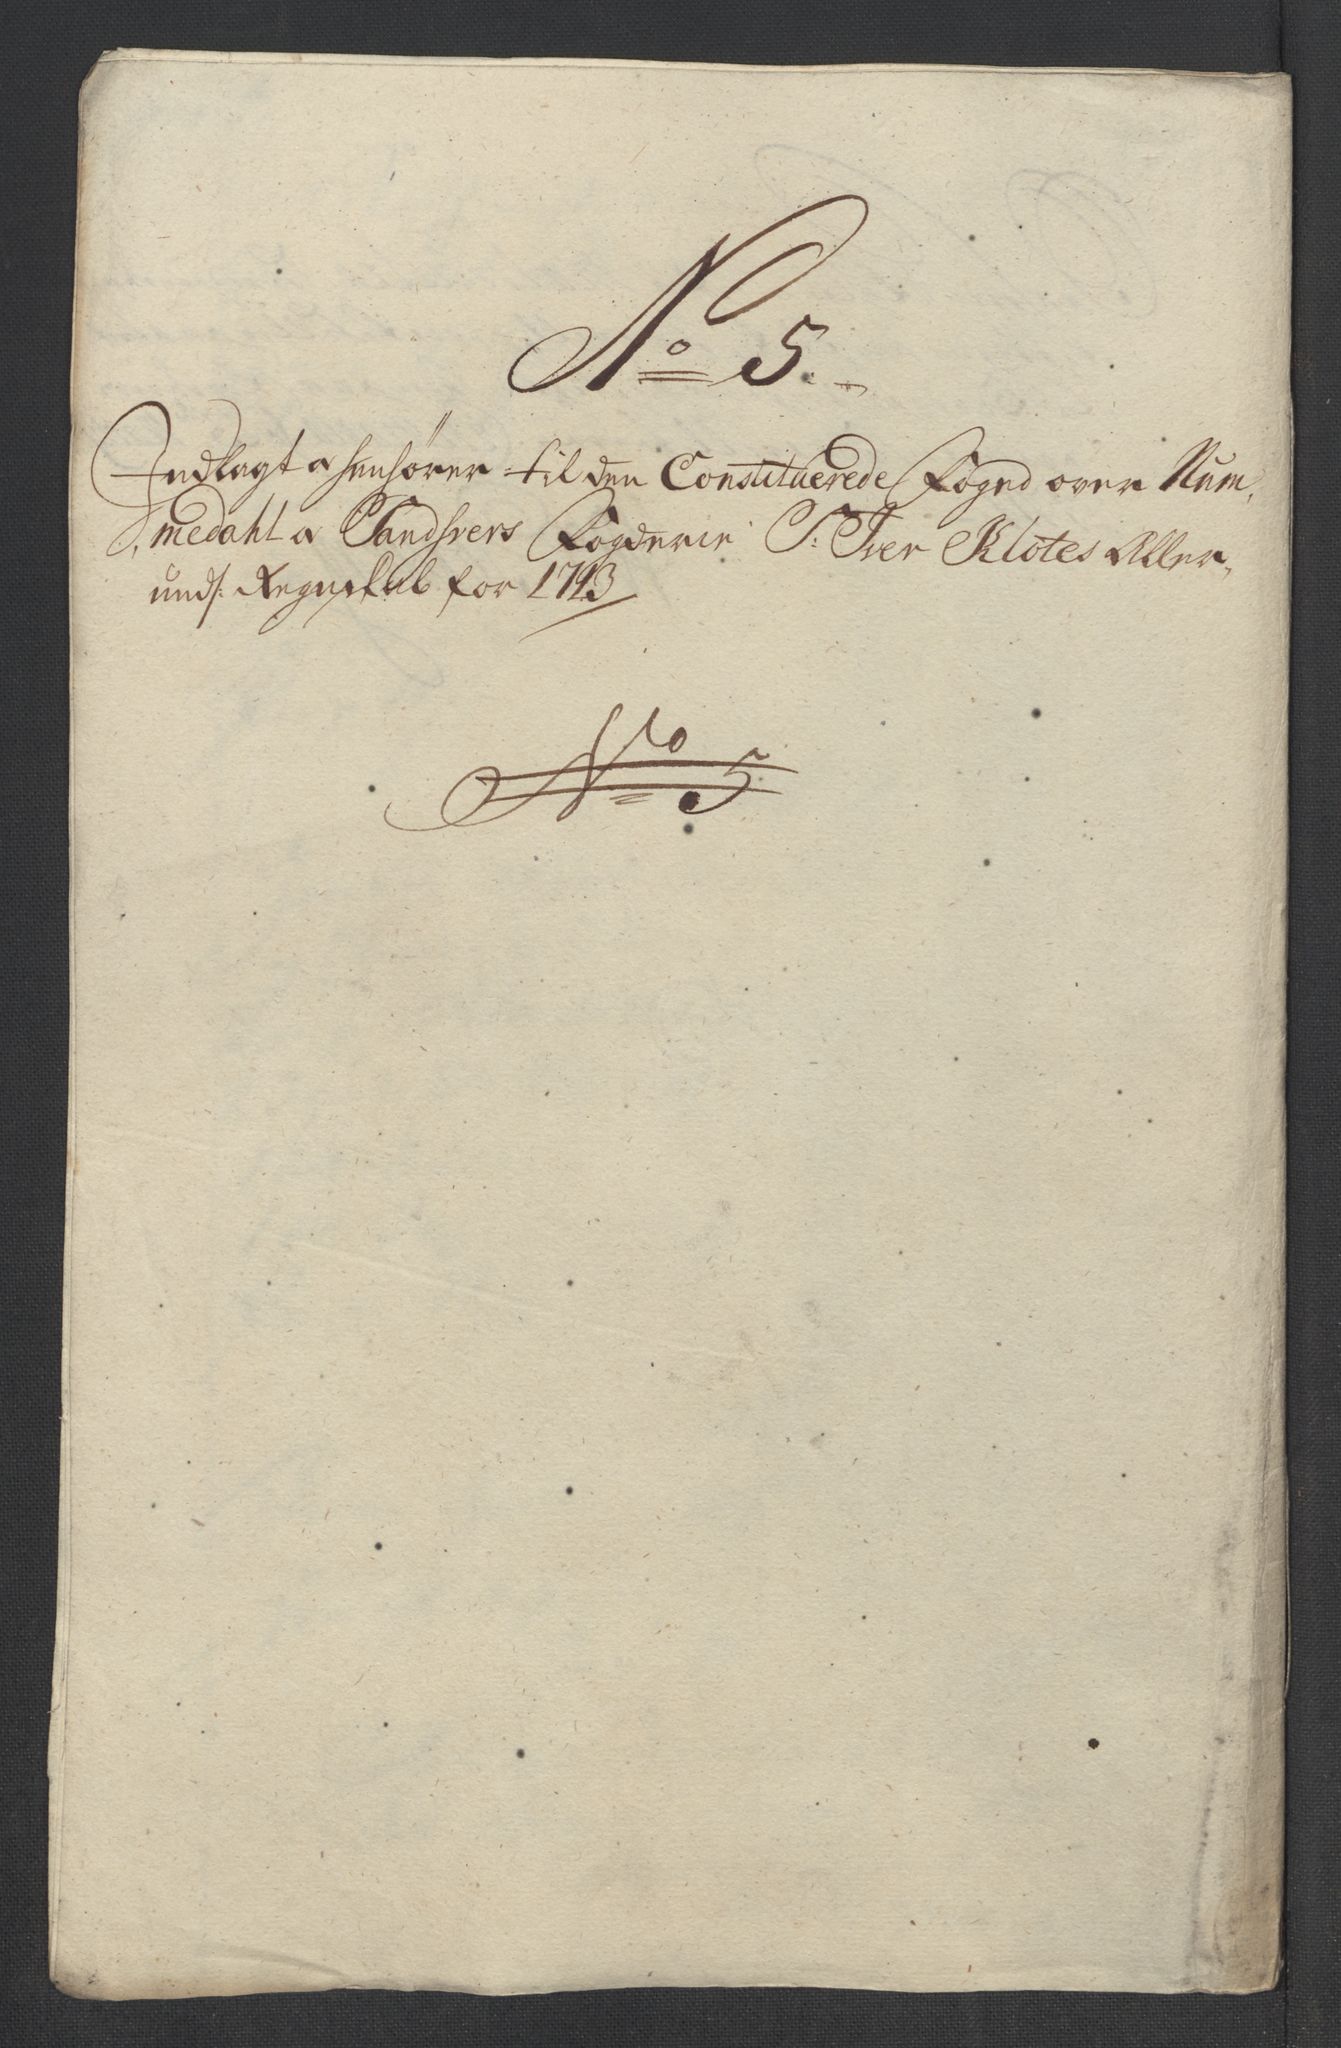 No 5.
Indlagt a henhører til den Constituerede Foged over Num,
,medahl a Sandsvers Fogderie S: Iver Klotes Aller,
unds: Regnskab for 1713
No 5